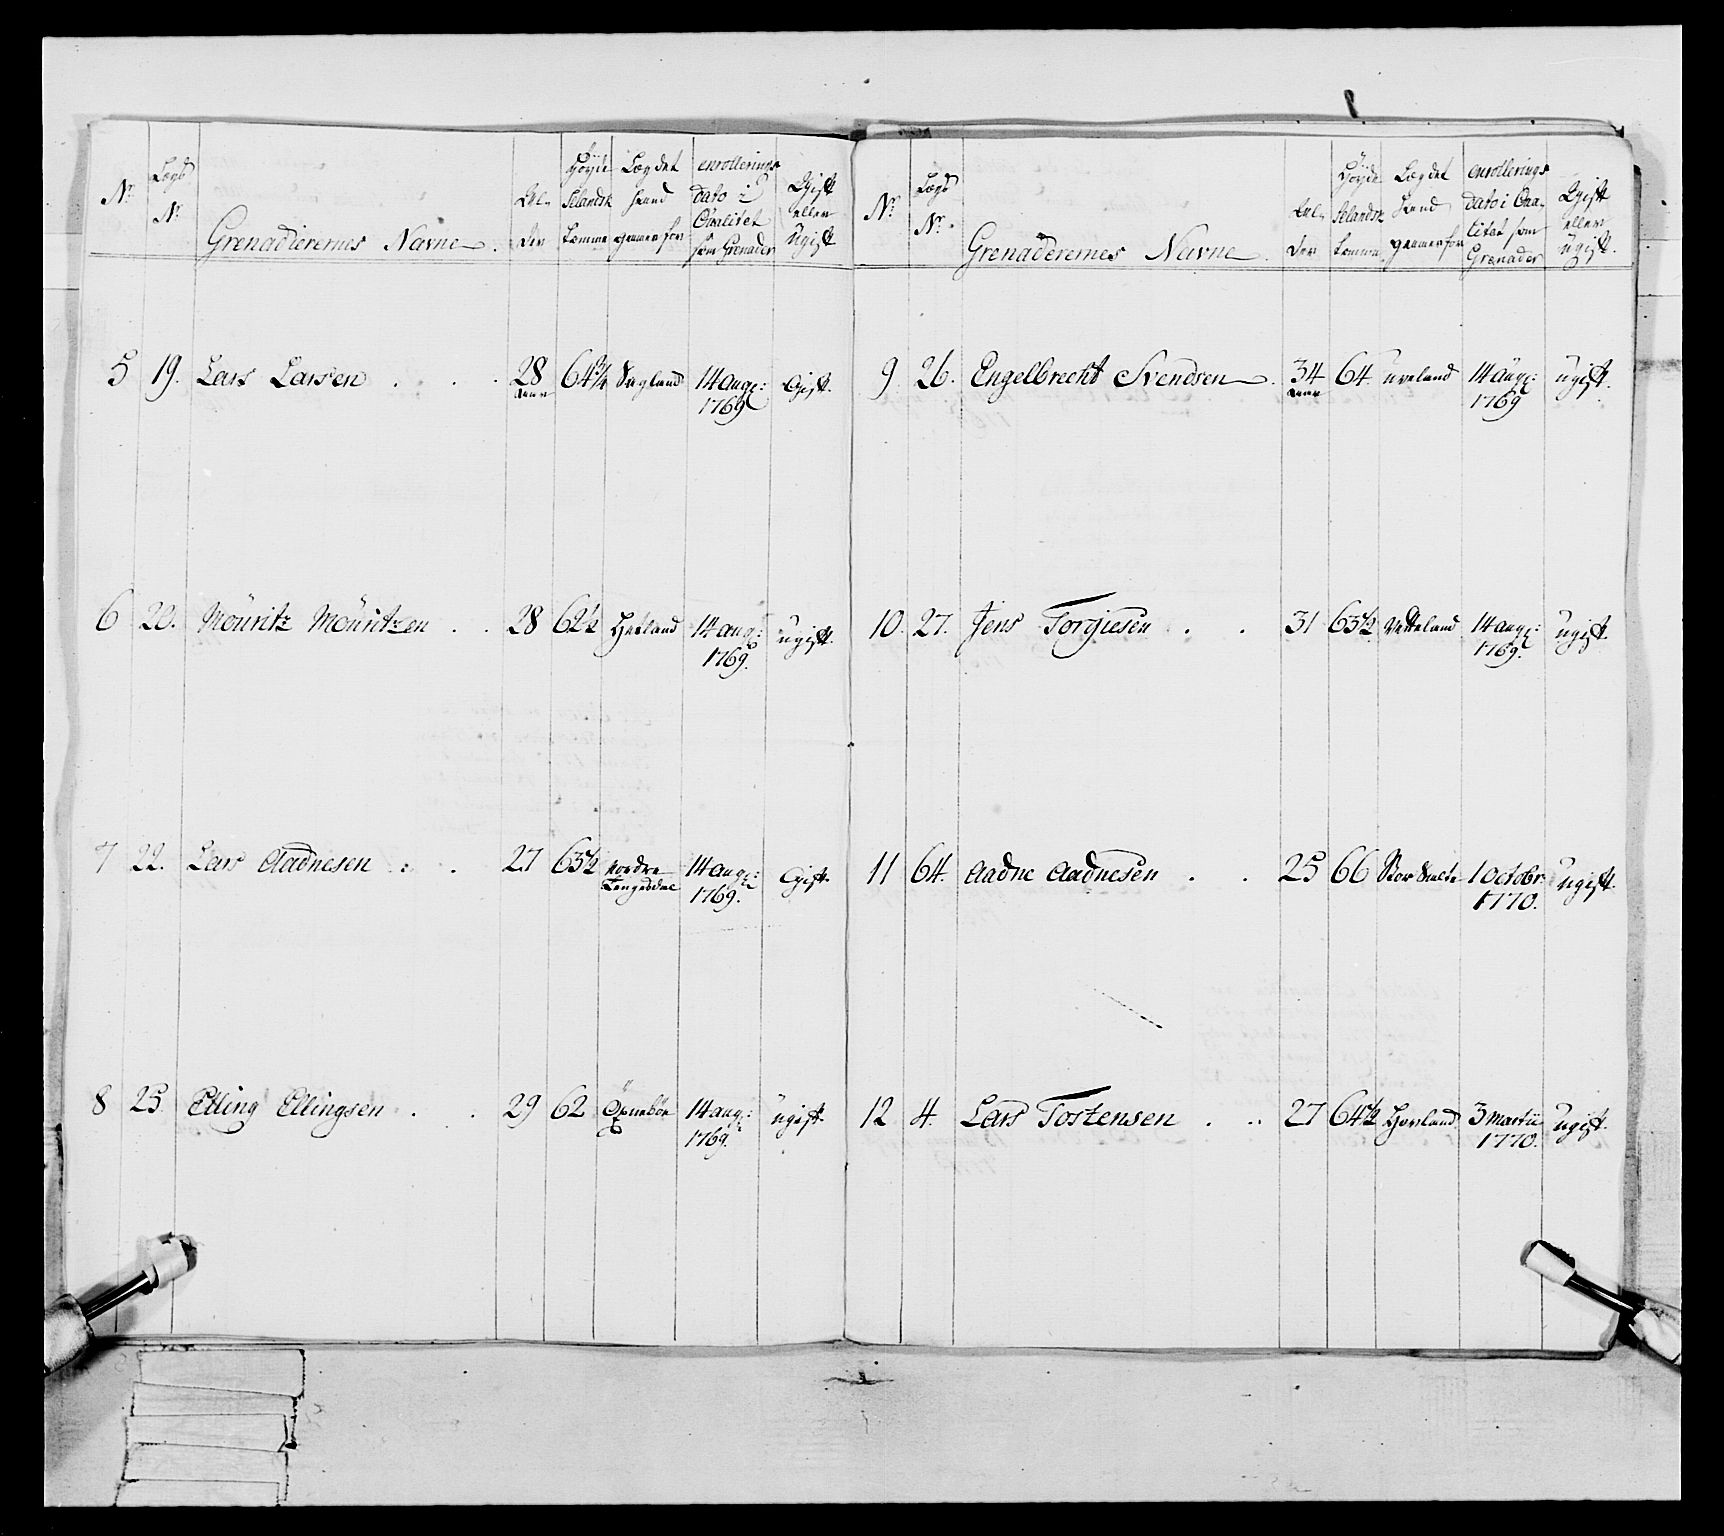 Nr. Lægs Nr. Grenadierernes Navne. Alder Høyde Selandsk Tomme Lægdet hand gaaer for enrollerings dato i Qvalitet som Grenader Gift eller ugift
5 19. Lars Larsen . . . 28 Aar 64¾ Sagland 14 aug: 1769 Gift.
6 20. Mouritz Mouritzen . . 28 62½ Hetland 14 aug: 1769. ugift.
7 22. Lars Aadnesen : . 27 63½ Nordre 14 aug: 1769. Gift.
8 25. Elling Ellingsen . . 29 62 14 aug: 1769. ugift.
Nr. Lægs Nr. Grenaderernes Navne. Alder Høyde Selandsk Tomme Lægdet hand gaaer for enrollerings dato i Qvalitet som Grenader Gift eller ugift.
9 26. Engelbrecht Svendsen. 34 Aar 64. 14 aug: 1769 ugift.
10. 27. Jens Torgiesen . . 31 63½ 14 aug: 1769. ugift.
11 64. Aadne Aadnesen . . 25 66 1 octobr: 1770. ugift.
12 4. Lars Tostensen . . 27 64½ 3 Martii 1770. ugift.